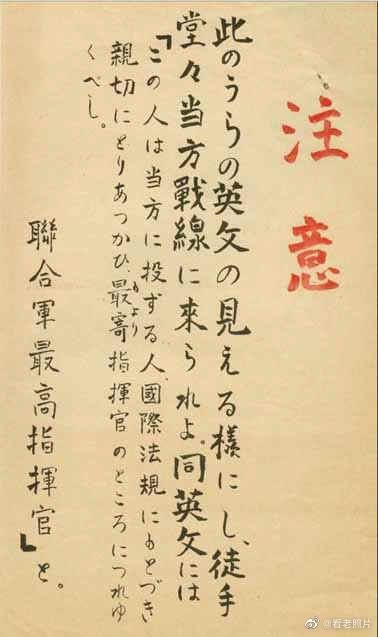 注意
此のうらの英文の見える様にし、徒手
堂々当方戰線に來られよ。同英文には
「この人は当方に投ずる人、國際法規にもとづき
親切にとりあつかひ、最寄指揮官のところにつれゆ
もより
くべし。
聯合軍最高指揮官」と。
@看老照片